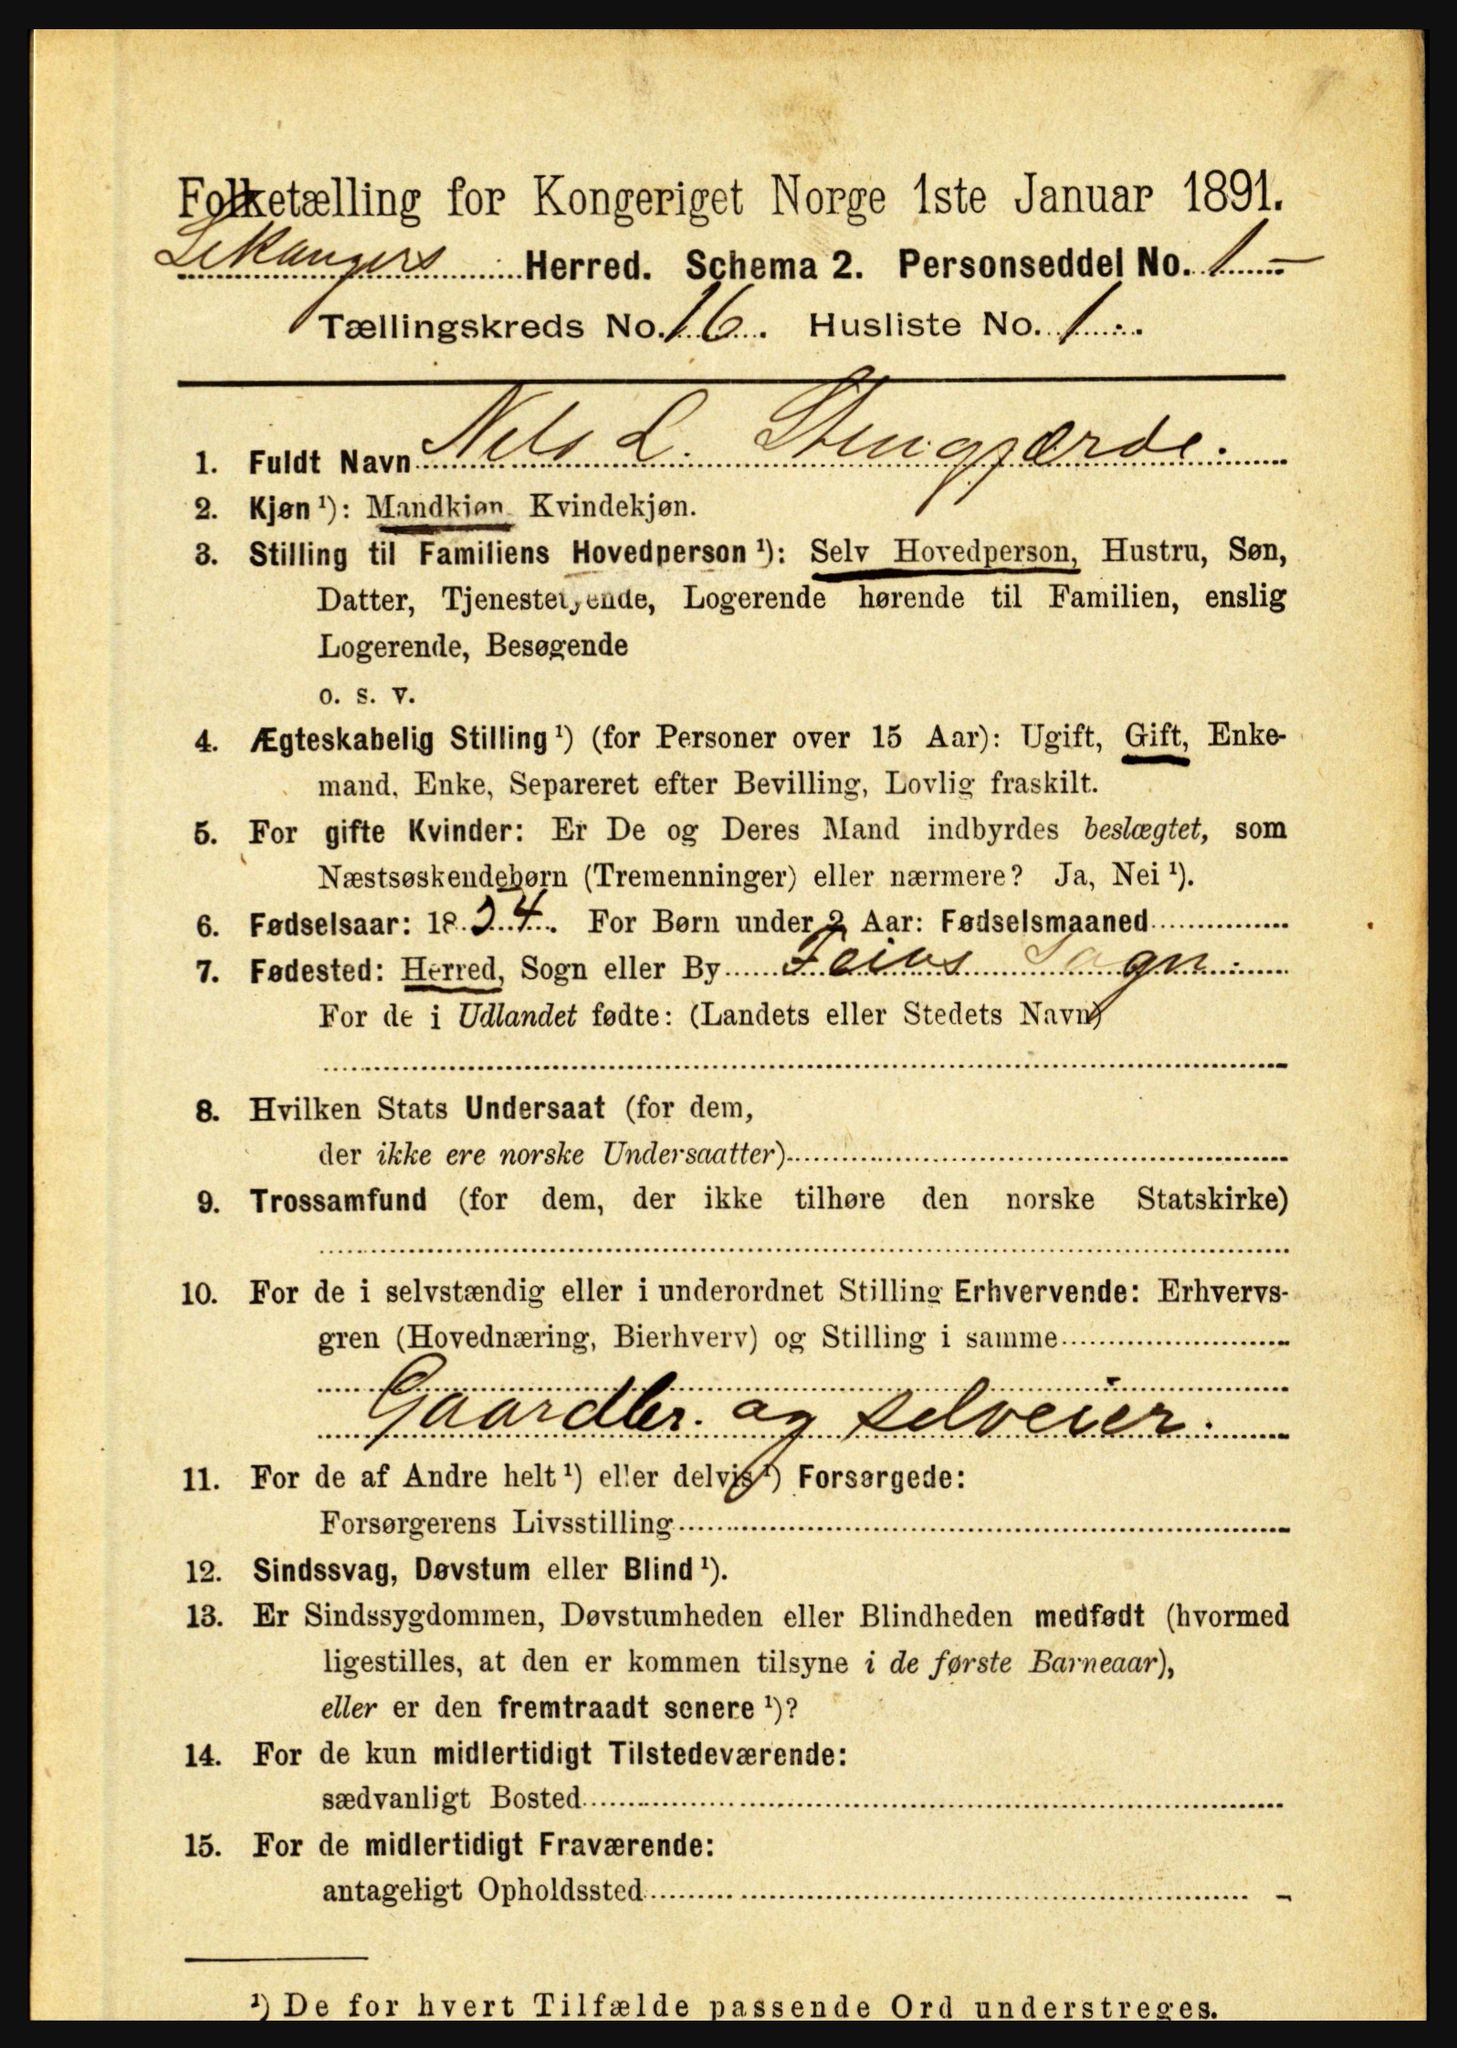 Folketælling for Kongeriget Norge 1ste Januar 1891.
Lekangers Herred. Schema 2. Personseddel No. 1
Tællingskreds No. 16. Husliste No. 1.
1. Fuldt Navn Nels L. Stengjærde.
2. Kjøn¹): Mandkjøn, Kvindekjøn.
3. Stilling til Familiens Hovedperson¹): Selv Hovedperson, Hustru, Søn,
Datter, Tjenestetyende, Logerende hørende til Familien, enslig
Logerende, Besøgende
o. s. v.
4. Ægteskabelig Stilling¹) (for Personer over 15 Aar): Ugift, Gift, Enke-
mand, Enke, Separeret efter Bevilling, Lovlig fraskilt.
5. For gifte Kvinder: Er De og Deres Mand indbyrdes beslægtet, som
Næstsøskendebørn (Tremenninger) eller nærmere? Ja, Nei¹).
6. Fødselsaar: 1834. For Børn under 2 Aar: Fødselsmaaned
7. Fødested: Herred, Sogn eller By Feios Sogn.
For de i Udlandet fødte: (Landets eller Stedets Navn)
8. Hvilken Stats Undersaat (for dem,
der ikke ere norske Undersaatter)
9. Trossamfund (for dem, der ikke tilhøre den norske Statskirke)
10. For de i selvstændig eller i underordnet Stilling Erhvervende: Erhvervs-
gren (Hovednæring, Bierhverv) og Stilling i samme
Gaardbr. og selveier.
11. For de af Andre helt¹) eller delvis¹) Forsørgede:
Forsørgerens Livsstilling
12. Sindssvag, Døvstum eller Blind¹).
13. Er Sindssygdommen, Døvstumheden eller Blindheden medfødt (hvormed
ligestilles, at den er kommen tilsyne i de første Barneaar),
eller er den fremtraadt senere¹)?
14. For de kun midlertidigt Tilstedeværende:
sædvanligt Bosted
15. For de midlertidigt Fraværende:
antageligt Opholdssted
¹) De for hvert Tilfælde passende Ord understreges.